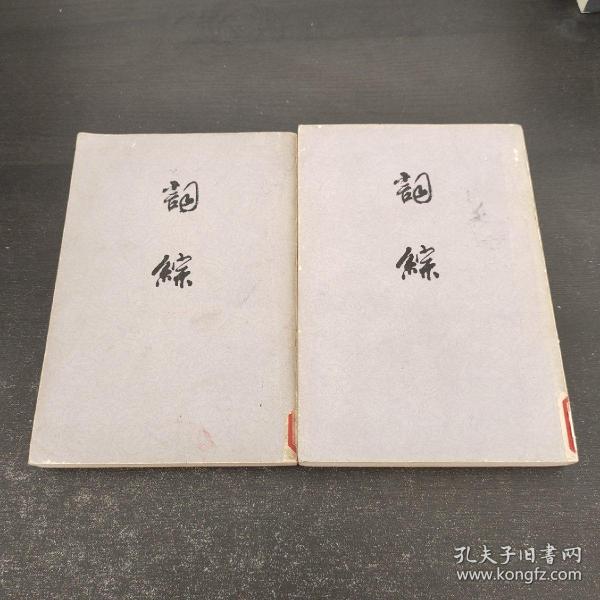 詞
綜
詞
綜
孔夫子旧書网
www.kongfz.com